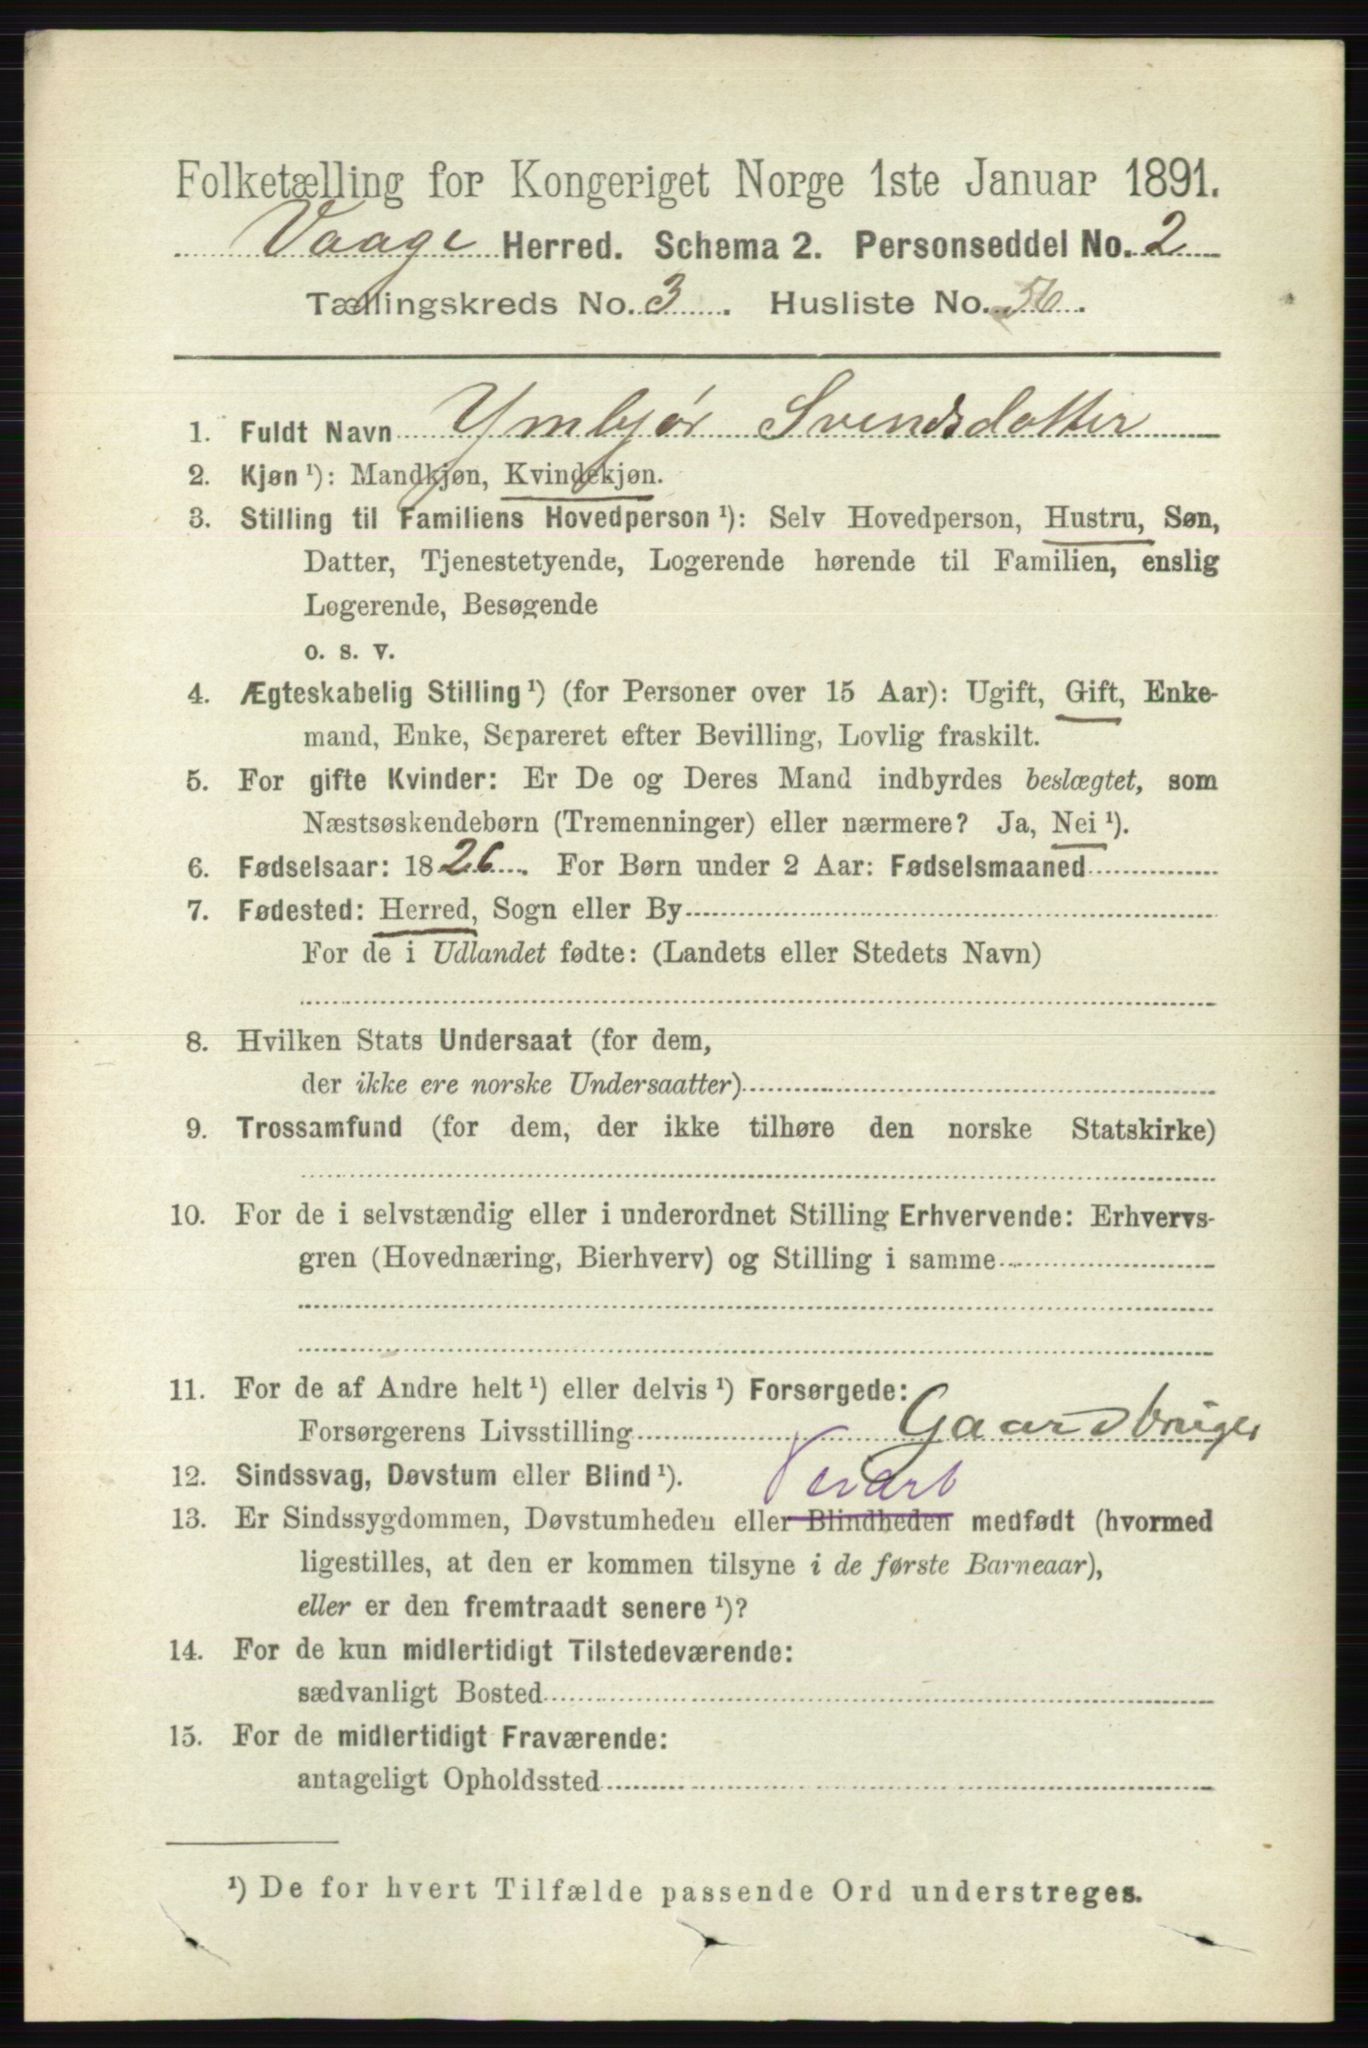 Folketælling for Kongeriget Norge 1ste Januar 1891.
Vaage Herred. Schema 2. Personseddel No. 2
Tællingskreds No. 3. Husliste No. 56.
1. Fuldt Navn Ymbjør Svendsdatter
2. Kjøn ¹): Mandkjøn, Kvindekjøn.
3. Stilling til Familiens Hovedperson ¹): Selv Hovedperson, Hustru, Søn,
Datter, Tjenestetyende, Logerende hørende til Familien, enslig
Logerende, Besøgende
o. s. v.
4. Ægteskabelig Stilling ¹) (for Personer over 15 Aar): Ugift, Gift, Enke-
mand, Enke, Separeret efter Bevilling, Lovlig fraskilt.
5. For gifte Kvinder: Er De og Deres Mand indbyrdes beslægtet, som
Næstsøskendebørn (Tremenninger) eller nærmere? Ja, Nei ¹).
6. Fødselsaar: 1826. For Børn under 2 Aar: Fødselsmaaned
7. Fødested: Herred, Sogn eller By
For de i Udlandet fødte: (Landets eller Stedets Navn)
8. Hvilken Stats Undersaat (for dem,
der ikke ere norske Undersaatter)
9. Trossamfund (for dem, der ikke tilhøre den norske Statskirke)
10. For de i selvstændig eller i underordnet Stilling Erhvervende: Erhvervs-
gren (Hovednæring, Bierhverv) og Stilling i samme
11. For de af Andre helt ¹) eller delvis ¹) Forsørgede:
Forsørgerens Livsstilling Gaardbruger
12. Sindssvag, Døvstum eller Blind ¹).
13. Er Sindssygdommen, Døvstumheden eller Blindheden medfødt (hvormed
ligestilles, at den er kommen tilsyne i de første Barneaar),
eller er den fremtraadt senere ¹)?
14. For de kun midlertidigt Tilstedeværende:
sædvanligt Bosted
15. For de midlertidigt Fraværende:
antageligt Opholdssted
¹) De for hvert Tilfælde passende Ord understreges.